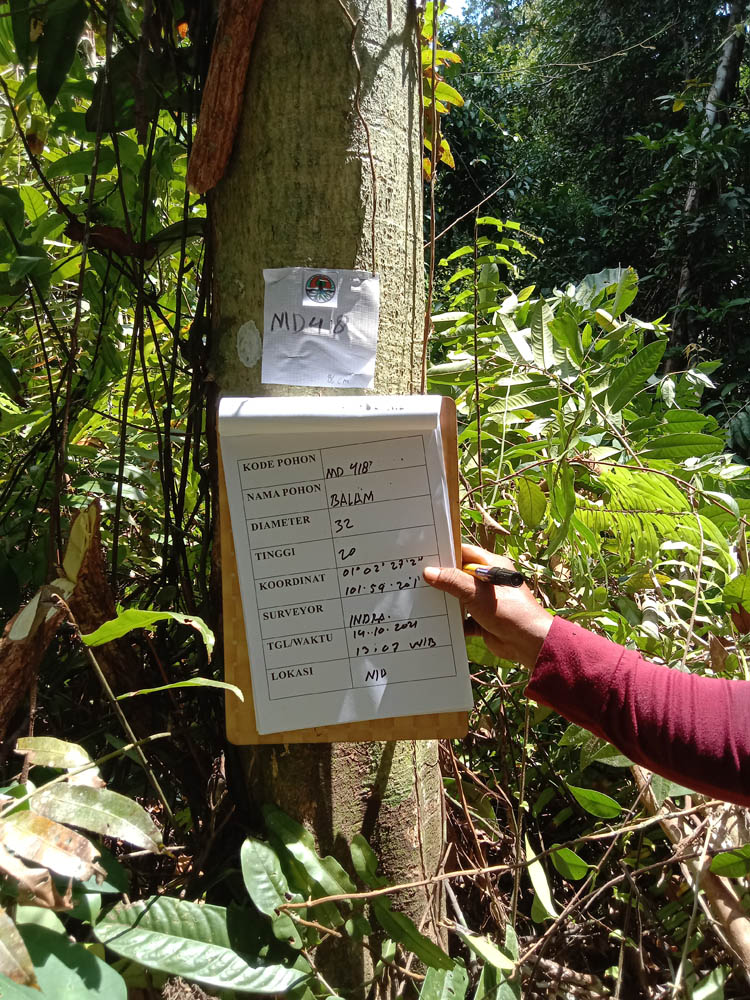 MD 418
KODE POHON MD 418
NAMA POHON BALAM
DIAMETER 32
TINGGI 20
KOORDINAT 01° 02' 27'2"
101·59·20'1"
SURVEYOR INDRA.
TGL/WAKTU 14.10.2021
13:07 WIB
LOKASI MD